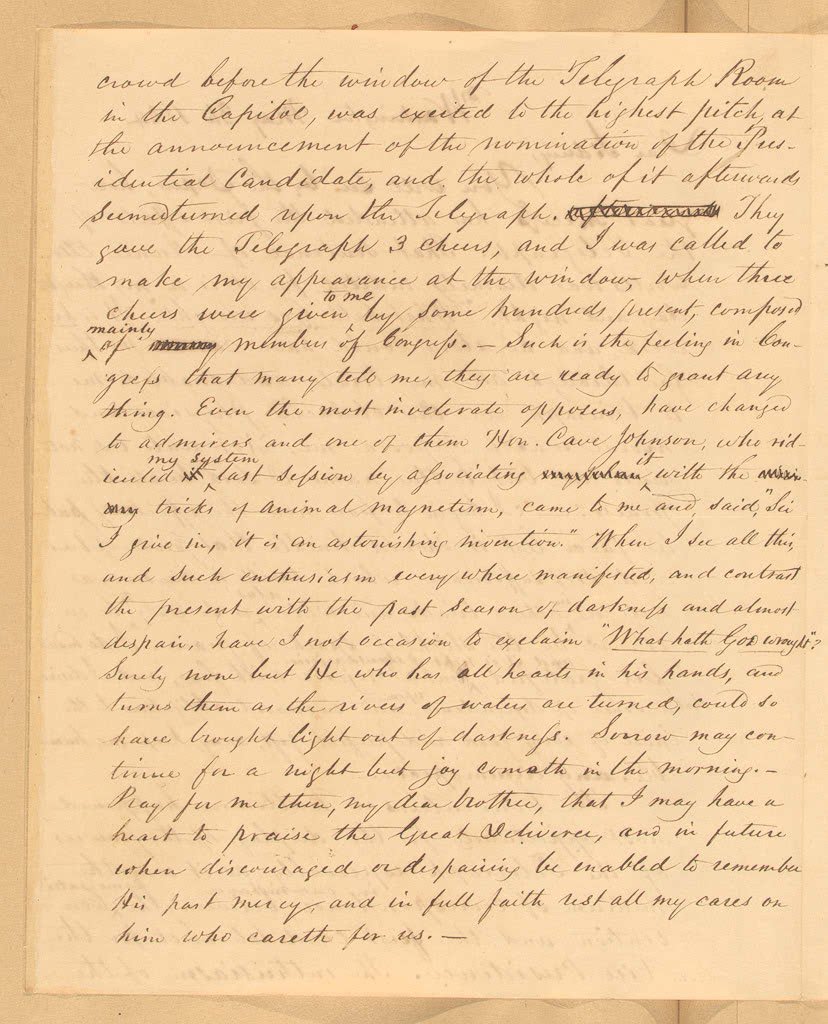 crowd before the window of the Telegraph Room
in the Capitol, was excited to the highest pitch, at
the announcement of the nomination of the Pres-
idential Candidate, and the whole of it afterwards
seemed turned upon the Telegraph. They
gave the Telegraph 3 cheers, and I was called to
make my appearance at the window, when three
cheers were given to me by some hundreds present, composed
mainly of members of Congress. — Such is the feeling in Con-
gress that many tell me, they are ready to grant any
thing. Even the most inveterate opposers, have changed
to admirers and one of them Hon. Cave Johnson, who rid-
iculed my system last session by associating it with the
tricks of animal magnetism, came to me and, said, "Sir
I give in, it is an astonishing invention." When I see all this,
and such enthusiasm every where manifested, and contrast
the present with the past season of darkness and almost
despair, have I not occasion to exclaim "What hath God wrought"?
Surely none but He who has all hearts in his hands, and
turns them as the rivers of waters are turned, could so
have brought light out of darkness. Sorrow may con-
tinue for a night but joy cometh in the morning. —
Pray for me then, my dear brother, that I may have a
heart to praise the Great Deliverer, and in future
when discouraged or despairing be enabled to remember
His past mercy, and in full faith rest all my cares on
him who careth for us. —